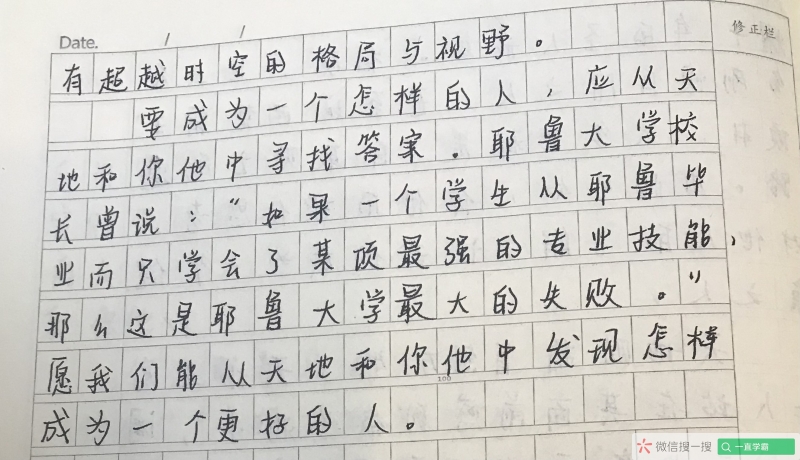 Date. / /
修正栏
有超越时空的格局与视野。
要成为一个怎样的人，应从天
地和你他中寻找答案。耶鲁大学校
长曾说：“如果一个学生从耶鲁毕
业而只学会了某项最强的专业技能，
那么这是耶鲁大学最大的失败。”
愿我们能从天地和你他中发现怎样
成为一个更好的人。
100
微信搜一搜 一直学霸